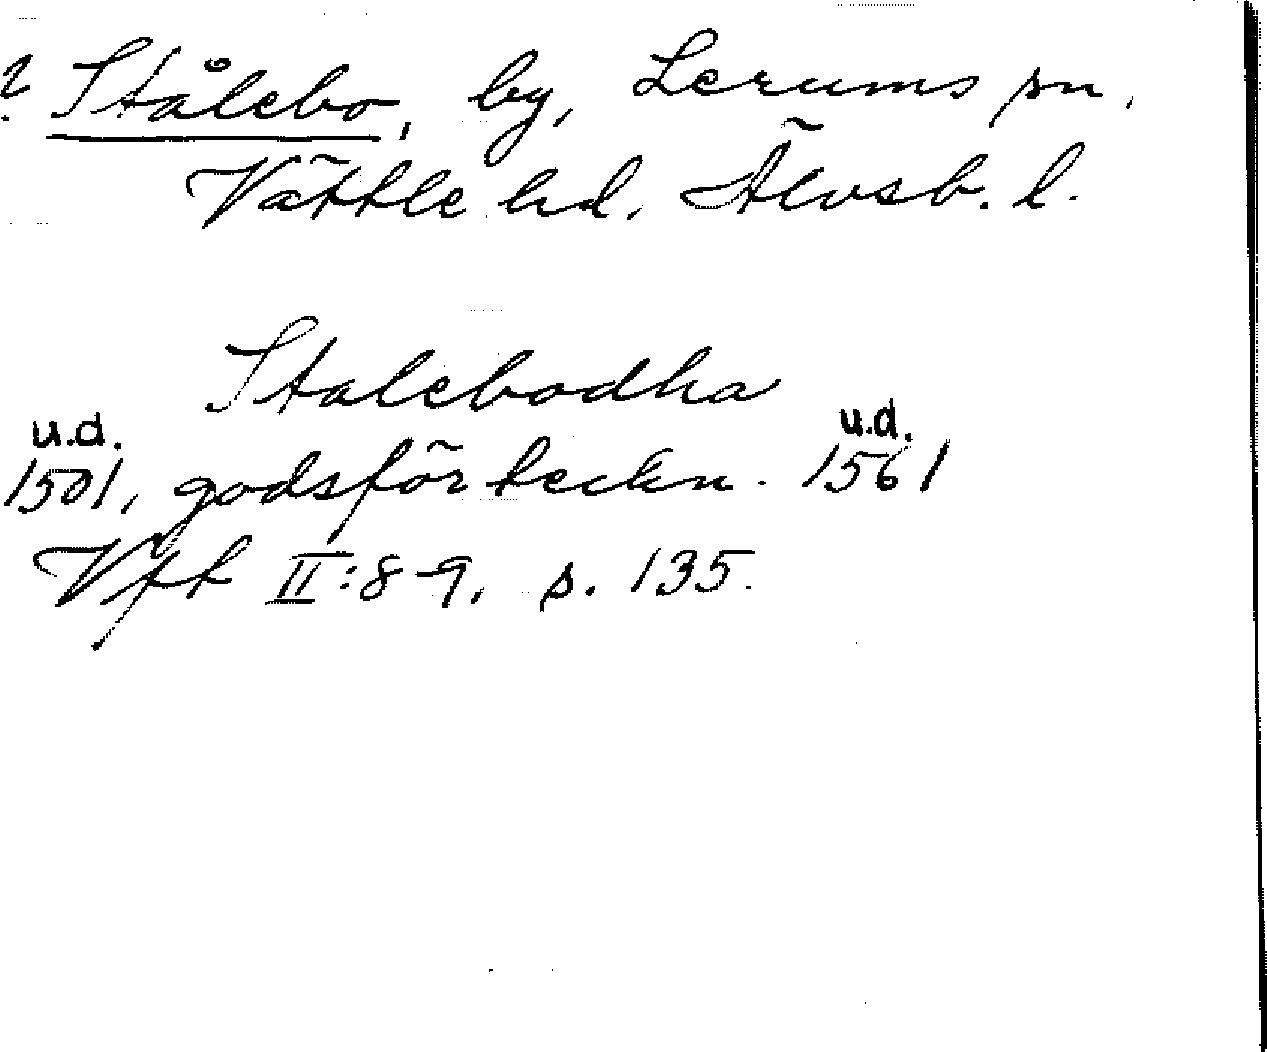 ? Stålebo, by, Lerums sn,
Vättle hd. Älvsb. l.
Stalebodha
u.d. u.d.
1501, godsförteckn. 1561
Vft II:8-9, s. 135.